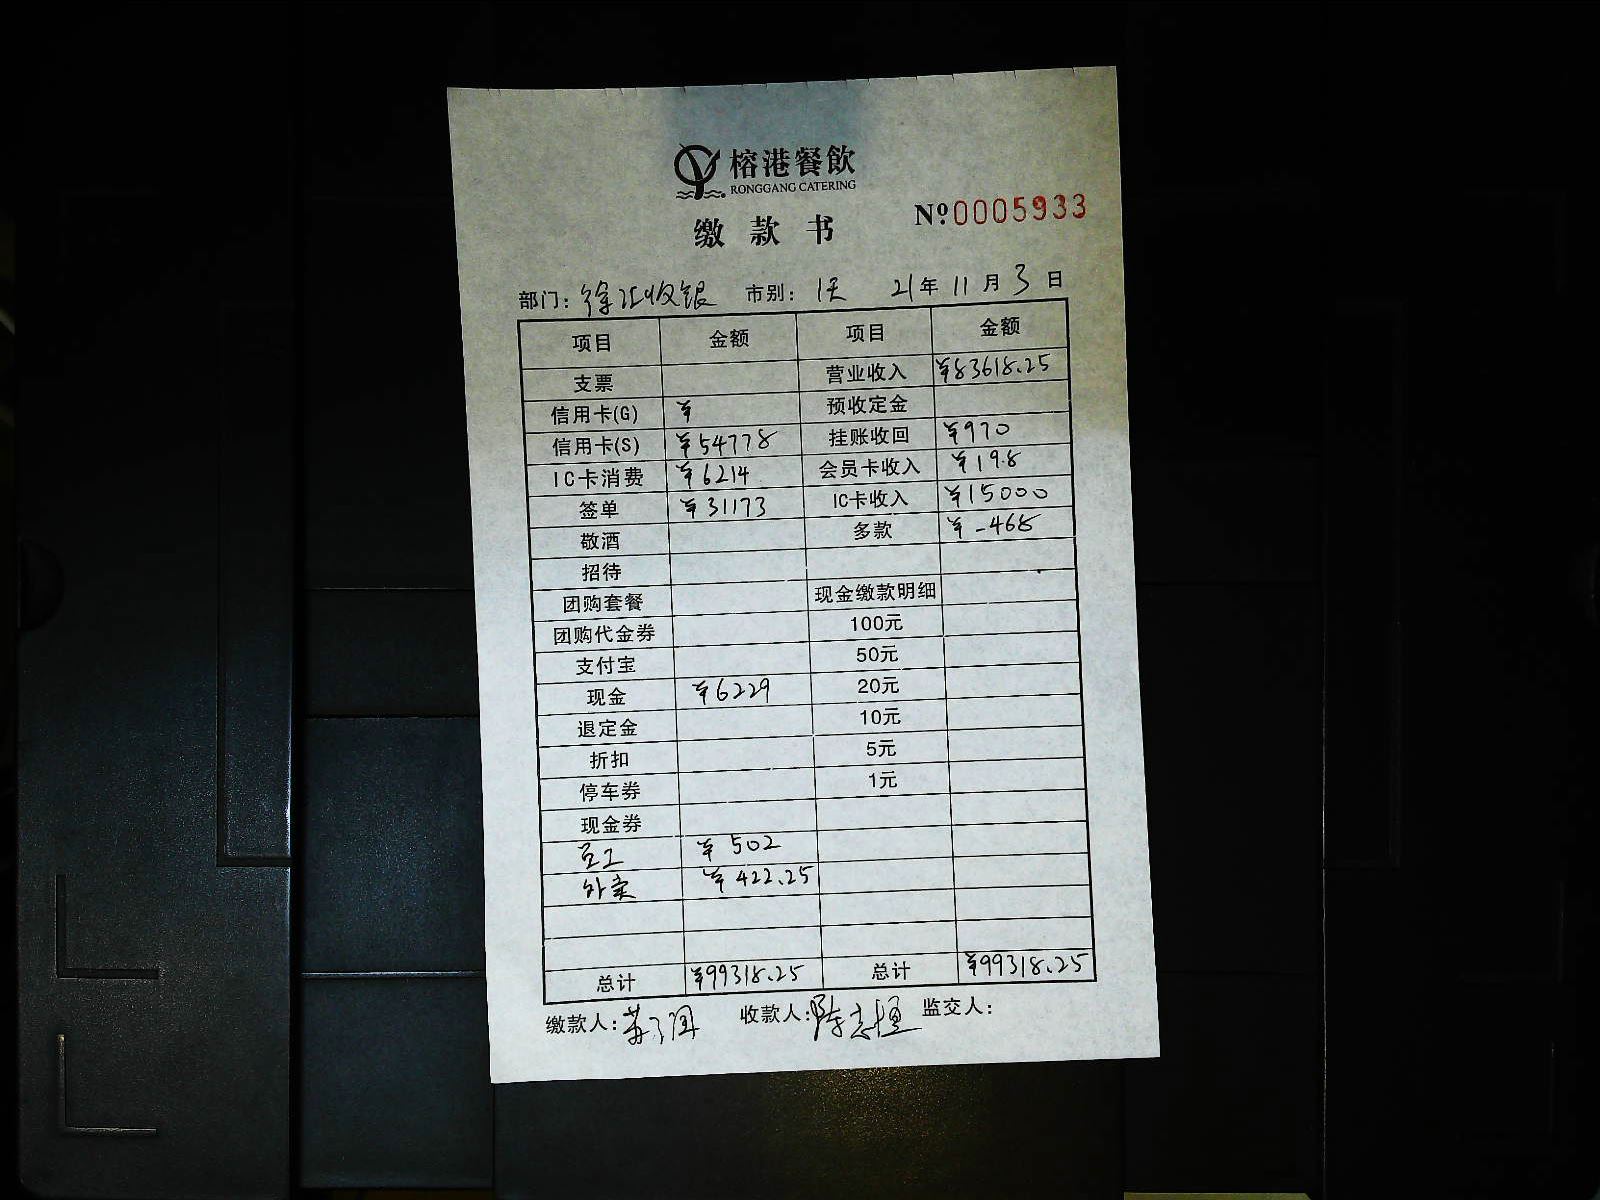 榕港餐飲
RONGGANG CATERING
缴款书
Nº 0005933
部门: 徐汇收银 市别: 1天 21年 11月 3日
项目 金额 项目 金额
支票 营业收入 ¥83618.25
信用卡(G) ¥ 预收定金
信用卡(S) ¥54778 挂账收回 ¥970
IC卡消费 ¥6214 会员卡收入 ¥198
签单 ¥31173 IC卡收入 ¥15000
敬酒 多款 ¥-468
招待
团购套餐 现金缴款明细
团购代金券 100元
支付宝 50元
现金 ¥6229 20元
退定金 10元
折扣 5元
停车券 1元
现金券
员工 ¥502
外卖 ¥422.25
总计 ¥99318.25 总计 ¥99318.25
缴款人: 收款人: 陈志恒 监交人: